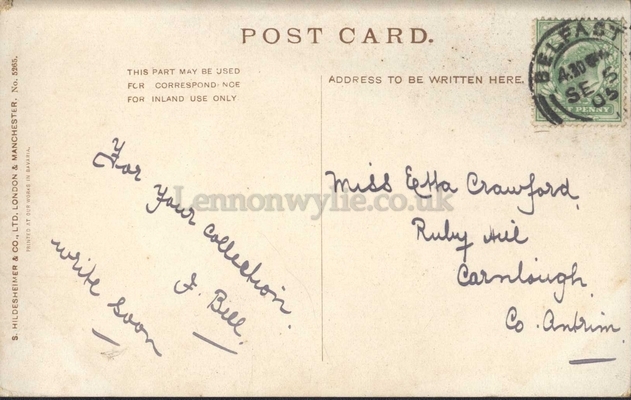 POST CARD.
THIS PART MAY BE USED
FOR CORRESPONDENCE
FOR INLAND USE ONLY
ADDRESS TO BE WRITTEN HERE.
BELFAST
4.30 PM
SE 5
05
PENNY
S. HILDESHEIMER & CO., LTD. LONDON & MANCHESTER. No. 5265.
PRINTED AT OUR WORKS IN BAVARIA.
For your collection.
J. Bill.
write soon
Miss Etta Crawford,
Ruby Hill
Carnlough.
Co. Antrim.
Lennonwylie.co.uk